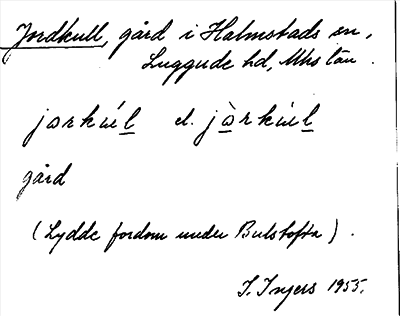 Jordkull, gård i Halmstads sn,
Luggude hd, Mhs län.
jarkúl el. jàrkùl
gård
(Lydde fordom under Bulstofta).
I. Ingers 1955.